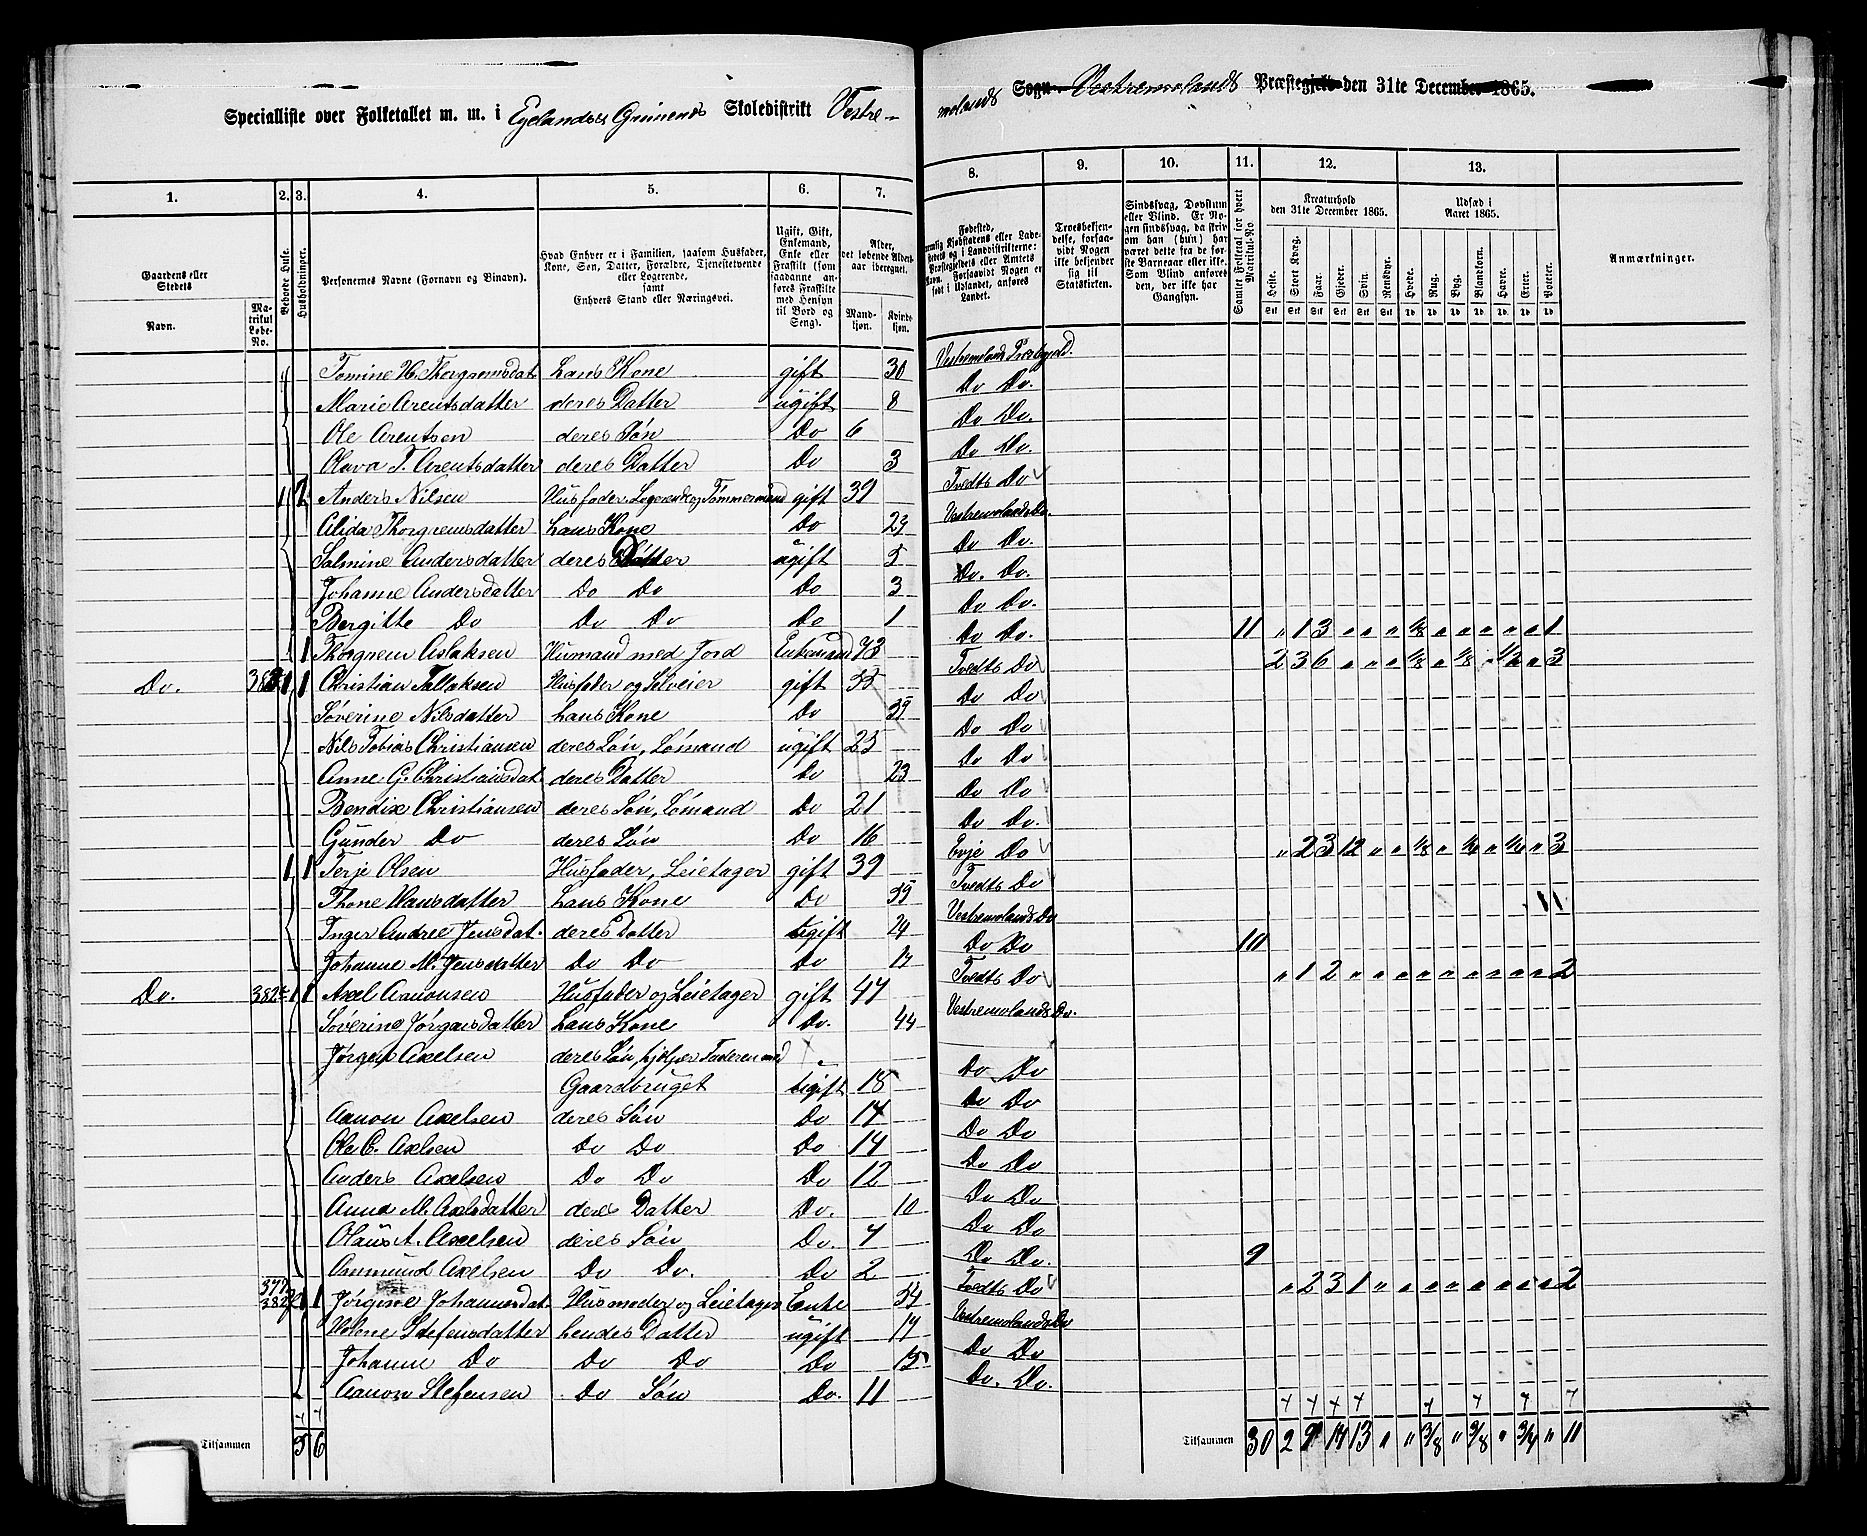 Specialliste over Folketallet m. m. i Egelands Grimens Skoledistrikt Vestre-
molands Sogn Vestremolands Præstegjeld den 31te December 1865.
1. 2. 3. 4. 5. 6. 7. 8. 9. 10. 11. 12. 13.
Gaardens eller Stedets
Navn. Matrikul Løbe-No.
Beboede Huse.
Husholdninger.
Personernes Navne (Fornavn og Binavn).
Hvad Enhver er i Familien, saasom Husfader, Kone, Søn, Datter, Forældre, Tjenestetyende eller Logerende, samt Enhvers Stand eller Næringsvei.
Ugift, Gift, Enkemand, Enke eller Fraskilt (som saadanne anføres Fraskilte med Hensyn til Bord og Seng).
Alder, det løbende Aldersaar iberegnet.
Mandkjøn. Kvindekjøn.
Fødested,
Troesbekjendelse, forsaavidt Nogen ikke bekjender sig til Statskirken.
Sindssvag, Døvstum eller Blind. Er Nogen sindssvag, da skrives om han (hun) har været dette fra de første Barneaar eller ikke. Som Blind anføres den, der ikke har Gangsyn.
Samlet Folketal for hvert Matrikul-No.
Kreaturhold den 31te December 1865.
Udsæd i Aaret 1865.
Heste. Stort Kvæg. Faar. Gjeder. Svin. Rensdyr. Hvede. Rug. Byg. Blandkorn. Havre. Erter. Poteter.
Anmærkninger.
Tomine H. Thorgremsdat. hans Kone gift 30 Vestremolands Præstegjeld.
Marie Arentsdatter deres Datter ugift 8 Do Do.
Ole Arentsen deres Søn Do 6 Do Do.
Olava T. Arentsdatter deres Datter Do 3 Do Do.
1 2 Anders Nilsen Husfader, Logerende og Tømmermand gift 39 Tvedts Do
Alida Thorgremsdatter hans Kone Do 29 Vestremolands Do.
Salmine Andersdatter deres Datter ugift 5 Do Do.
Johanne Andersdatter Do Do Do 3 Do. Do.
Bergitte Do Do Do Do 1 Do Do.
1 Thorgrem Aslaksen Husmand med Jord Enkemand 73 Do Do. 11 " 1 3 " " " 1/8 " " " " " 1
Do. 382 1 1 Christian Tallaksen Husfader og Selveier gift 55 Tvedts Do 2 3 6 " " " 1/8 " 1/8 " 1/2 " 3
Søverine Nilsdatter hans Kone Do 59 Do Do
Nils Tobias Christiansen deres Søn, Sømand ugift 25 Do Do
Anne G. Christiansdat. deres Datter Do 23 Do Do
Bendix Christiansen deres Søn, Sømand Do 21 Do Do
Gunder Do deres Søn Do 16 Do Do.
1 1 Terje Olsen Husfader, Leietager gift 39 Evje Do " 2 3 12 " " 1/8 " 1/4 " 1/4 " 3
Thone Hansdatter hans Kone Do 55 Tvedts Do
Inger Andree Jensdat. deres Datter ugift 24 Vestremolands Do 11
Johanne M. Jensdatter Do Do Do 17 Do Do 10
Do. 382 1 1 Axel Aanonsen Husfader og Leietager gift 47 Tvedts Do " 1 2 " " " " " " " " " 2
Søverine Jørgensdatter hans Kone Do. 44 Vestremolands Do.
Jørgen Axelsen deres Søn, hjelper Faderen med
Gaardbruget ugift 18 Do Do
Aanon Axelsen deres Søn Do 17 Do Do
Ole C. Axelsen Do Do Do 14 Do Do
Anders Axelsen Do Do Do 12 Do Do
Anna M. Axelsdatter deres Datter Do. 10 Do Do
Olaus A. Axelsen deres Søn Do. 4 Do Do
Ommund Axelsen Do Do. Do 2 Do Do. 9
377
382 1 1 Jørgine Johannesdat. Husmoder og Leietager Enke 54 Tvedts Do " 2 3 1 " " " " " " " " 2
Helene Stefensdatter hendes Datter ugift 17 Vestremolands Do
Johanne Do Do Do Do 15 Do Do
Aanon Stefensen Do Søn Do. 11 Do. Do.
Tilsammen 5 6 Tilsammen 30 2 9 17 13 " " 3/8 " 3/8 " 3/4 " 11